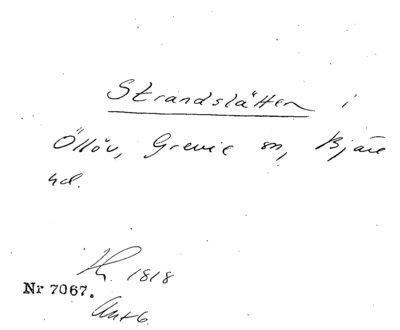 Strandslätten i
Öllöv, Grevie sn, Bjäre
hd.
1818
Nr 7067.